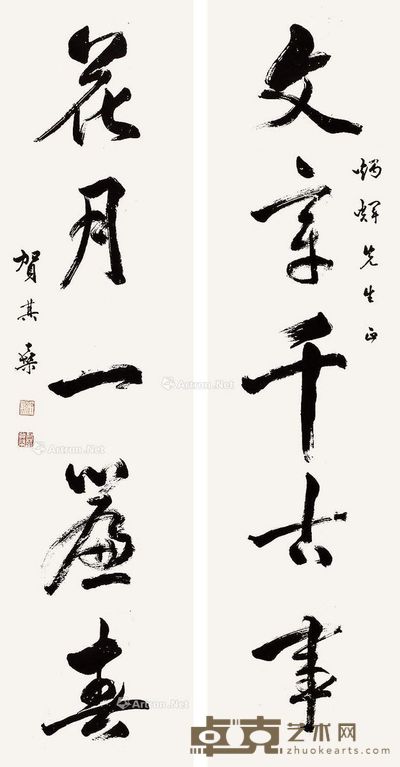 文章千古事
先生正
花月一帘春
贺其燊
Artron.Net
Artron.Net
Artron.Net
Artron.Net
卓克艺术网
zhuokearts.com